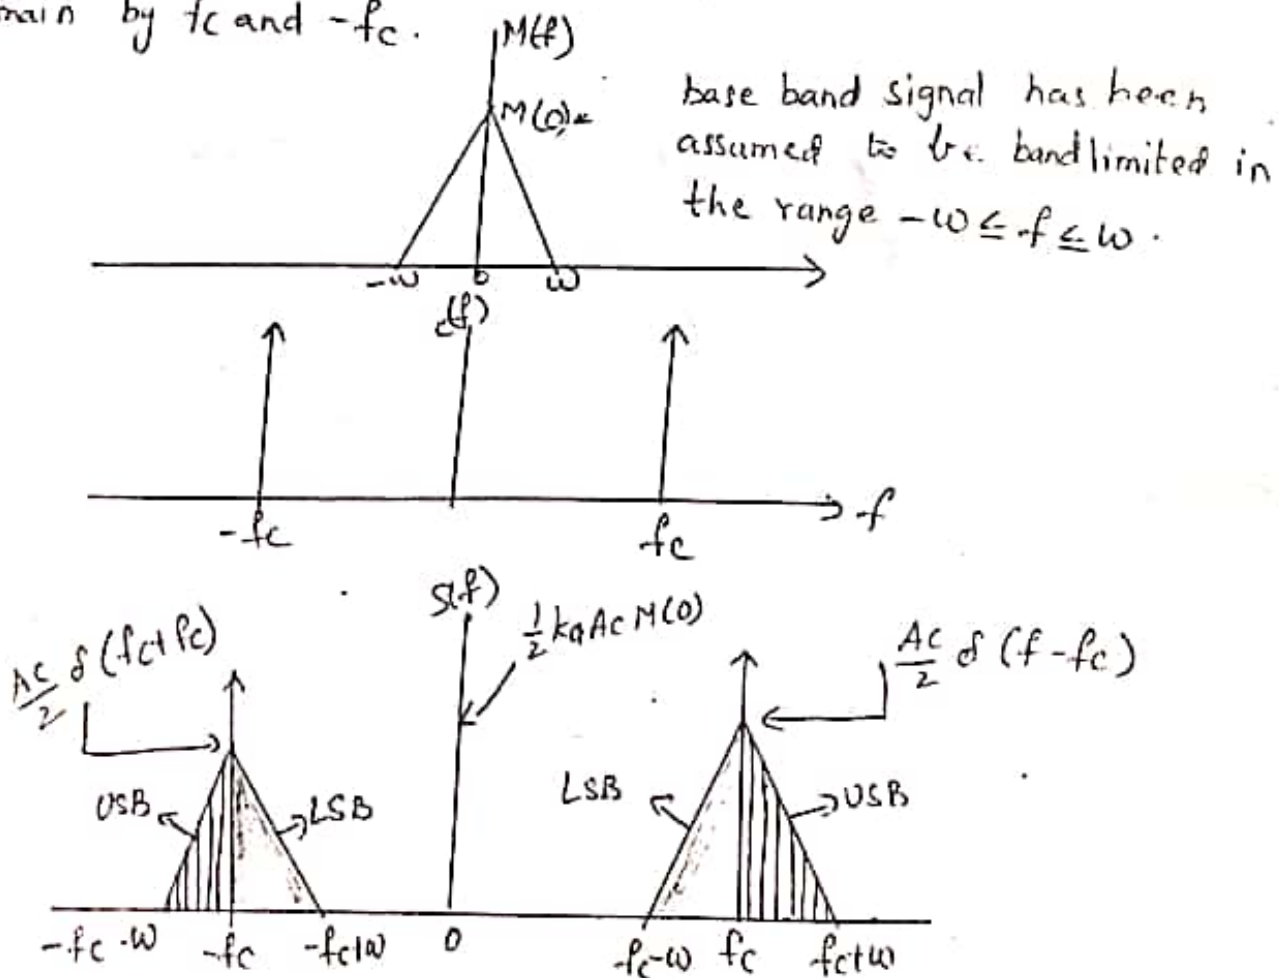 by fc and -fc.
M(f)
M(0)
base band signal has been
assumed to be bandlimited in
the range -w ≤ f ≤ w.
-w 0 w
c(f)
-fc fc f
S(f)
1/2 ka Ac M(0)
Ac/2 δ (fc+fc)
Ac/2 δ (f-fc)
USB LSB LSB USB
-fc-w -fc -fc+w 0 fc-w fc fc+w